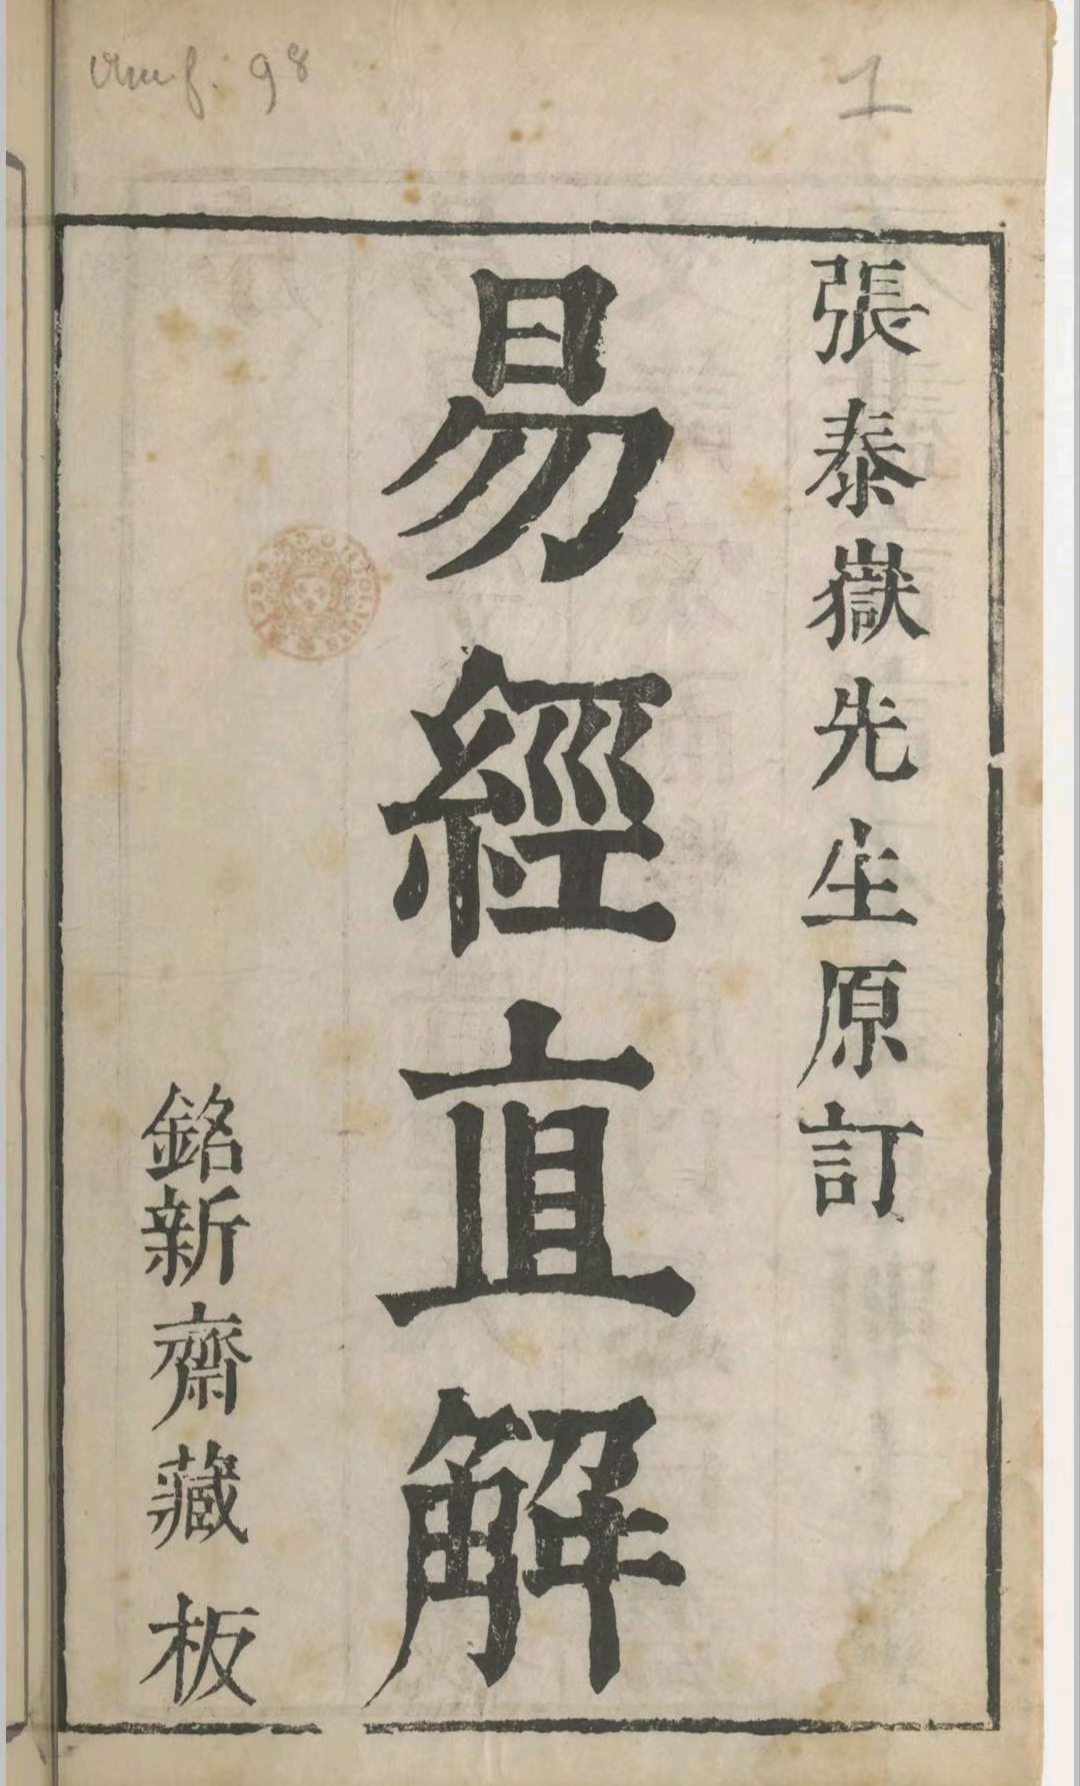 張泰嶽先生原訂
易經直解
銘新齋藏板
98
1